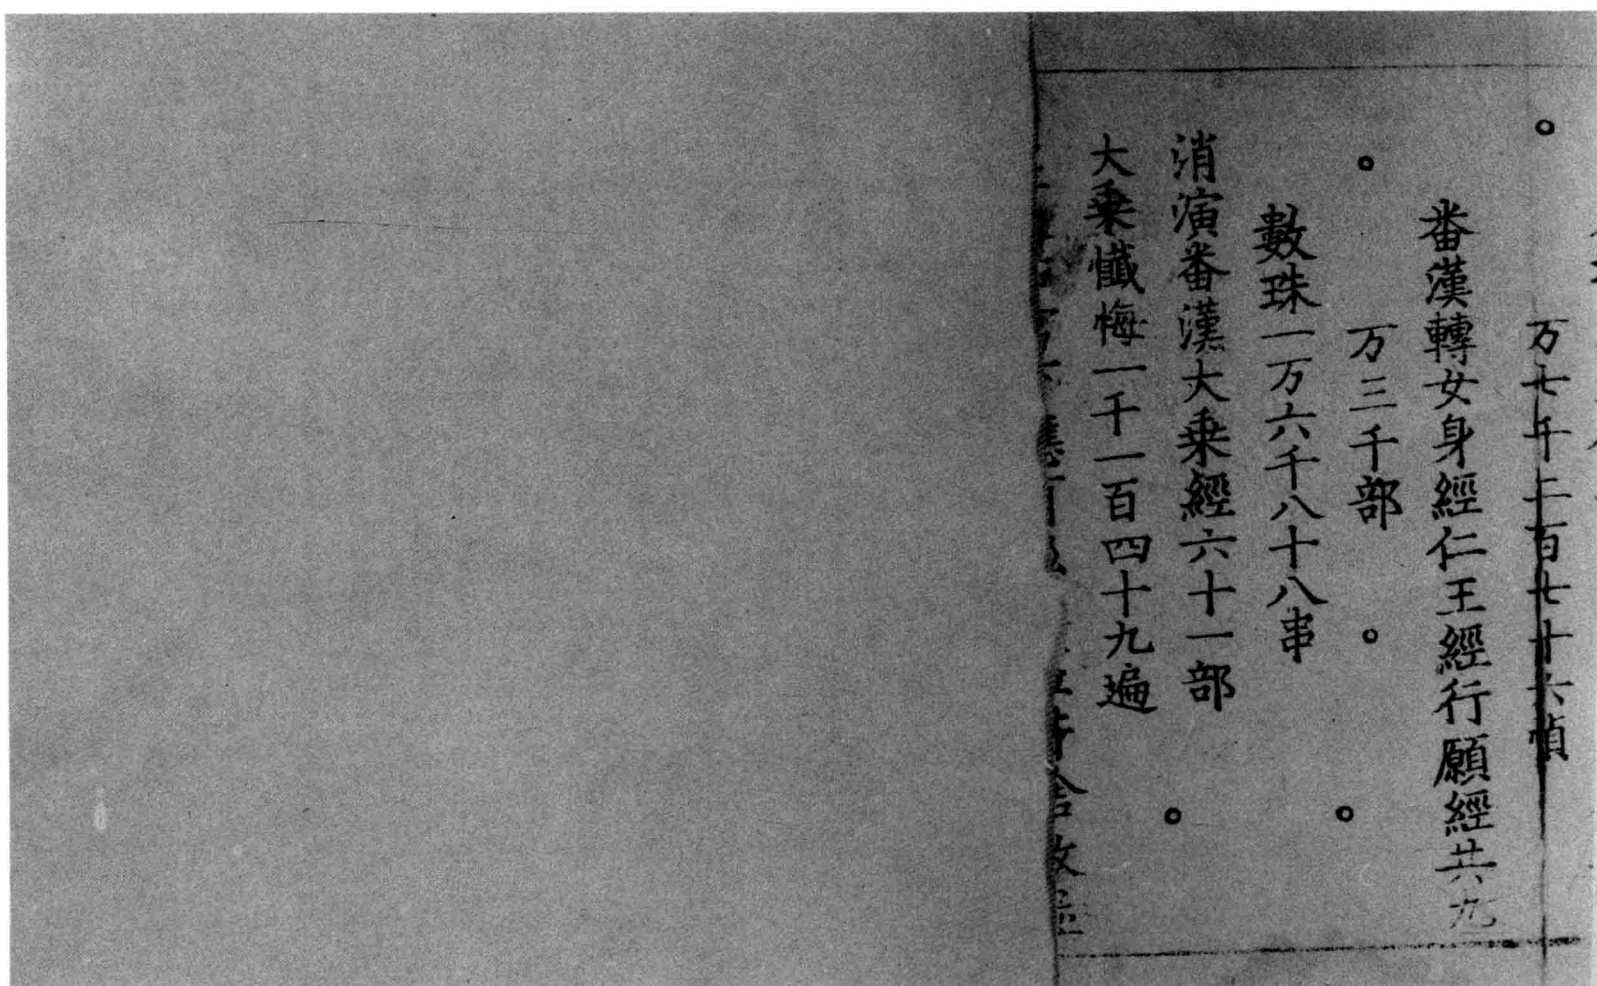 万七千二百七十六幀
番漢轉女身經仁王經行願經共九
万三千部
數珠一万六千八十八串
消演番漢大乗經六十一部
大乗懺悔一千一百四十九遍